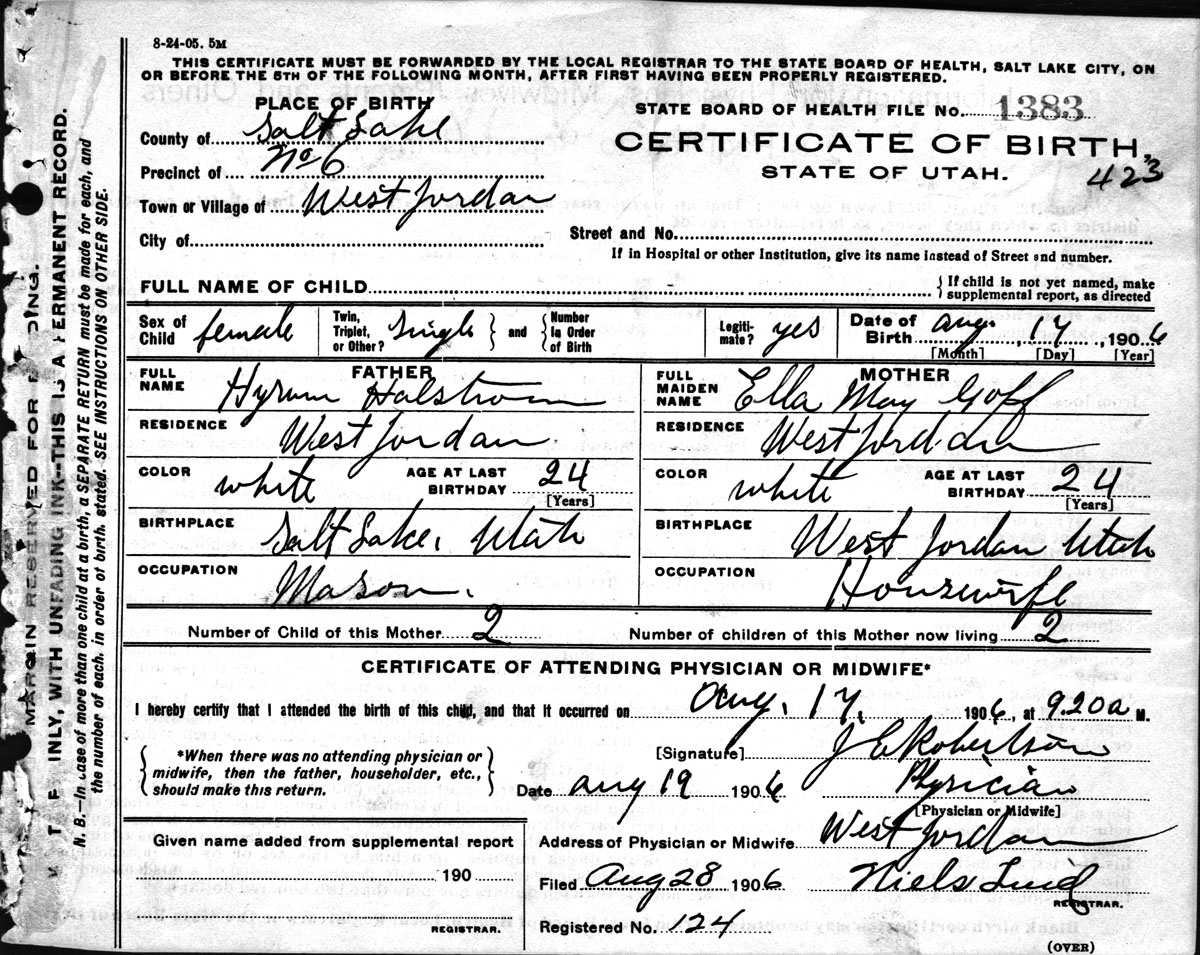 8-24-05. 5M
THIS CERTIFICATE MUST BE FORWARDED BY THE LOCAL REGISTRAR TO THE STATE BOARD OF HEALTH, SALT LAKE CITY, ON
OR BEFORE THE 5TH OF THE FOLLOWING MONTH, AFTER FIRST HAVING BEEN PROPERLY REGISTERED.
PLACE OF BIRTH
County of Salt Lake
Precinct of No 6
Town or Village of West Jordan
City of
STATE BOARD OF HEALTH FILE No. 1383
CERTIFICATE OF BIRTH,
STATE OF UTAH.
423
Street and No.
If in Hospital or other Institution, give its name instead of Street and number.
FULL NAME OF CHILD
If child is not yet named, make
supplemental report, as directed
Sex of Child female
Twin, Triplet, or Other? Single and Number in Order of Birth
Legiti-mate? yes
Date of Birth Aug. 17, 1906
[Month] [Day] [Year]
FATHER
FULL NAME Hyrum Halstrom
RESIDENCE West Jordan
COLOR white AGE AT LAST BIRTHDAY 24
[Years]
BIRTHPLACE Salt Lake, Utah
OCCUPATION Mason.
MOTHER
FULL MAIDEN NAME Ella May Goff
RESIDENCE West Jordan
COLOR white AGE AT LAST BIRTHDAY 24
[Years]
BIRTHPLACE West Jordan Utah
OCCUPATION Housewife
Number of Child of this Mother 2 Number of children of this Mother now living 2
CERTIFICATE OF ATTENDING PHYSICIAN OR MIDWIFE*
I hereby certify that I attended the birth of this child, and that it occurred on Aug. 17. 1906, at 920a M.
*When there was no attending physician or
midwife, then the father, householder, etc.,
should make this return.
[Signature] J E Robertson
Date Aug 19 1906 Physician
[Physician or Midwife]
Given name added from supplemental report
190
REGISTRAR.
Address of Physician or Midwife West Jordan
Filed Aug 28 1906 Niels Lind
REGISTRAR.
Registered No. 124
(OVER)
MARGIN RESERVED FOR
INLY, WITH UNFADING INK--THIS IS A PERMANENT RECORD.
N. B.—In case of more than one child at a birth, a SEPARATE RETURN must be made for each, and
the number of each, in order of birth, stated. SEE INSTRUCTIONS ON OTHER SIDE.